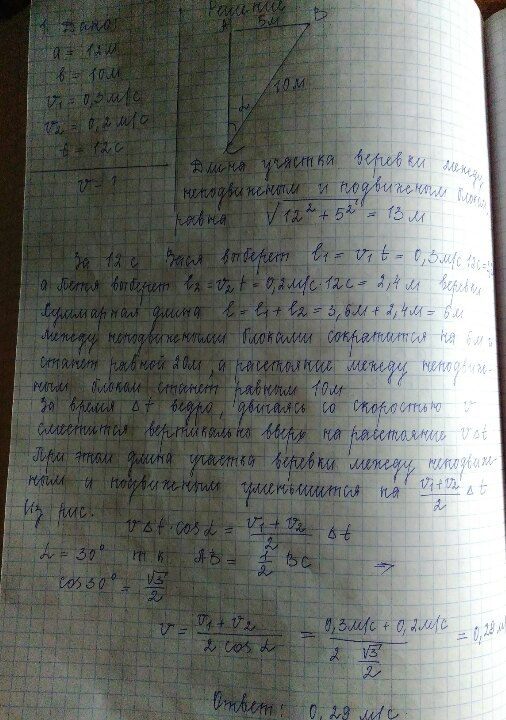 Решение
1. Дано
a = 12м
в = 10м
v₁ = 0,3м/с
v₂ = 0,2м/с
t = 12с
v - ?
A 5м B
10м
α
Длина участка веревки между
неподвижным и подвижным блоком
равна √12² + 5² = 13 м
За 12 с Вася выберет l₁ = v₁ t = 0,3м/с·12с =
а Петя выберет l₂ = v₂ t = 0,2м/с·12с = 2,4 м веревки
Суммарная длина l = l₁ + l₂ = 3,6м + 2,4м = 6м
между неподвижными блоками сократится на 6м и
станет равной 20м, а расстояние между неподвиж-
ным блоком станет равным 10м
За время Δt ведро, двигаясь со скоростью v
сместится вертикально вверх на расстояние vΔt
При этом длина участка веревки между неподвиж-
ным и подвижным уменьшится на (v₁+v₂)/2 Δt
Из рис.
vΔt·cosα = (v₁+v₂)/2 Δt
α = 30° т к AB = 1/2 BC ⇒
cos30° = √3/2
v = (v₁+v₂)/(2 cosα) = (0,3м/с + 0,2м/с)/(2 √3/2) = 0,29 м/
Ответ: 0,29 м/с.